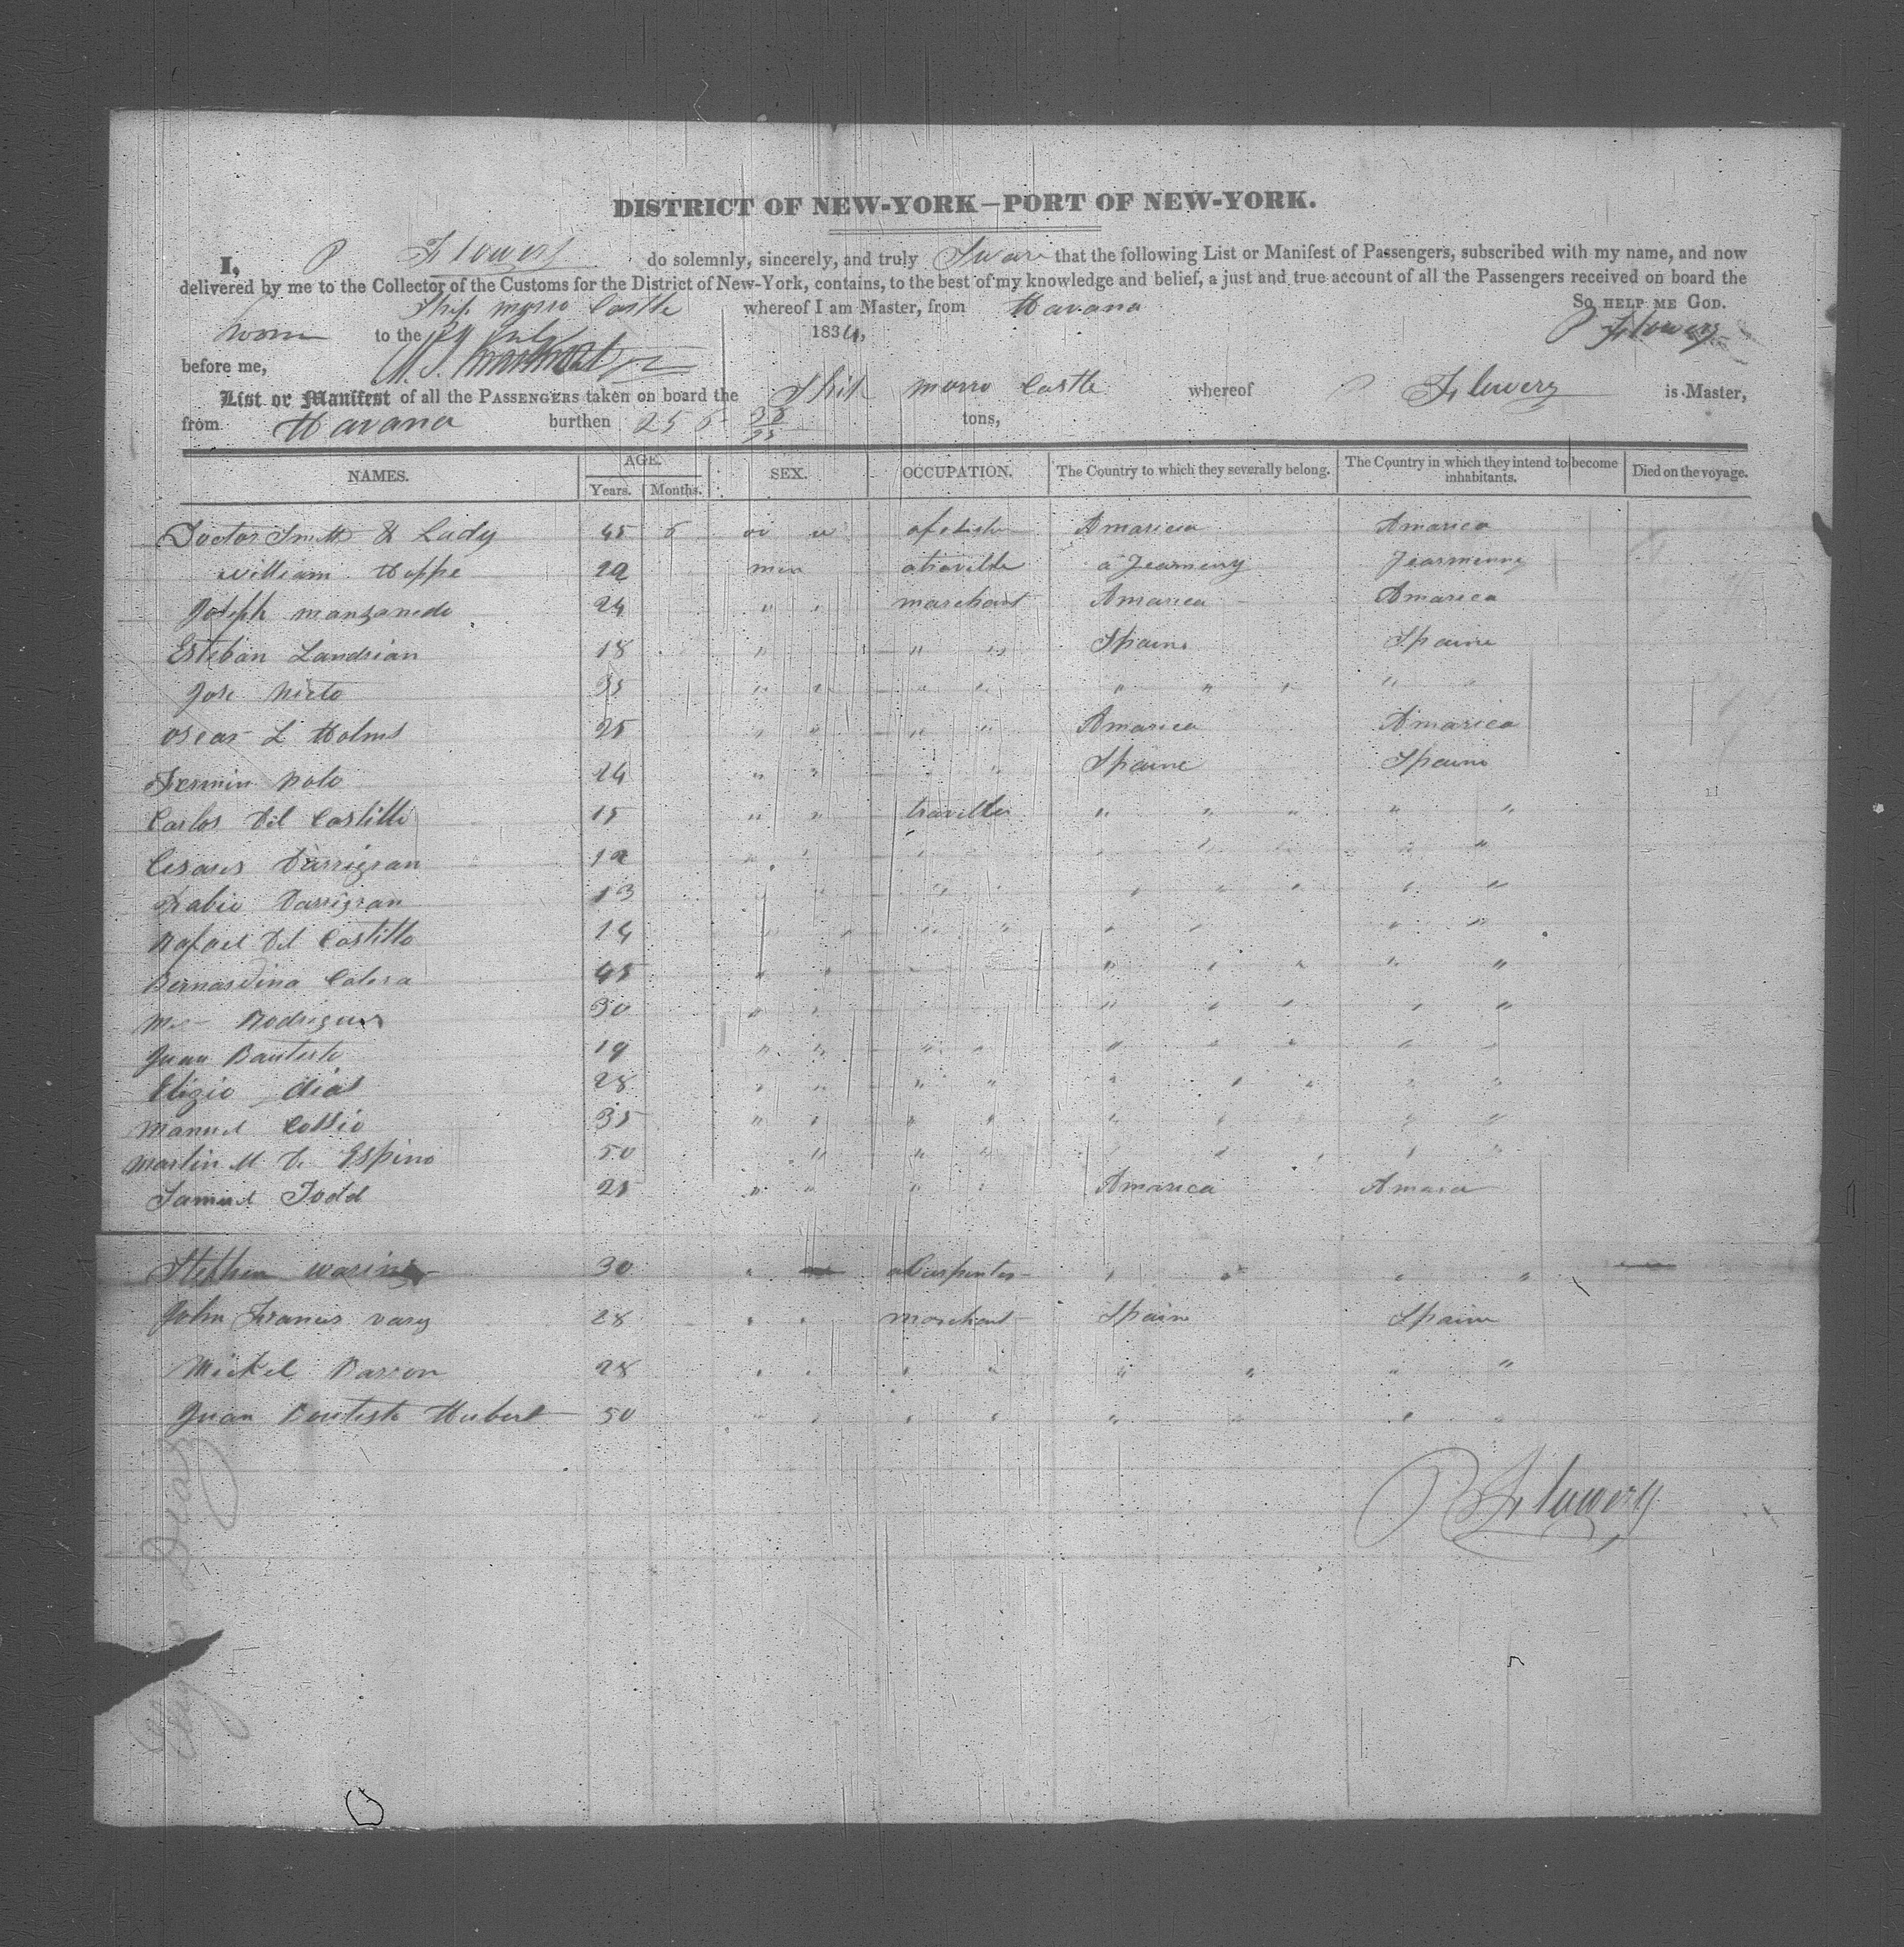 DISTRICT OF NEW-YORK—PORT OF NEW-YORK.
I, P Flowery do solemnly, sincerely, and truly Swear that the following List or Manifest of Passengers, subscribed with my name, and now
delivered by me to the Collector of the Customs for the District of New-York, contains, to the best of my knowledge and belief, a just and true account of all the Passengers received on board the
Ship morro Castle whereof I am Master, from Havana
So HELP ME GOD.
to the 183
P Flowery
before me,
List or Manifest of all the PASSENGERS taken on board the Ship morro Castle whereof P Flowery is Master,
from Havana burthen 256 tons,
NAMES. AGE. Years. Months. SEX. OCCUPATION. The Country to which they severally belong. The Country in which they intend to become inhabitants. Died on the voyage.
Doctor Smith & Lady 45 6 Amarica Amarica
William Hoppe 22 men
Joseph manzanedo 24 " " marchant Amarica Amarica
Esteban Landrian 18 " " " Spaine Spaine
Jose Nieto 35 " " " " " " " " "
Oscar L Holms 25 " " " " Amarica Amarica
Fermin Polo 24 " " " Spaine Spaine
Carlos Del Castillo 15 " " traviller " " " " "
Cesares Darrigran 12 " " " " " " " "
Fabio Darrigran 13 " " " " " " " "
Rafael Del Castillo 14 " " " " " " " "
Bernardina Calera 45 " " " " " " "
Rodrigues 30 " " " " " " "
Juan Bautista 19 " " " " " " " " "
Eligio dias 28 " " " " " " " " "
Manuel Cossio 35 " " " " " " " "
Martin M De Espino 50 " " " " " " "
Samuel Todd 25 " " " " Amarica Amarca
Stephen waring 30 " a Carpenter " " " "
John Francis vary 28 " " marchant Spaine Spaine
Mickel Barron 28 " " " " " " " "
Juan Boutista Hubert 50 " " " " " " " "
P Flowery
Eligio Diaz